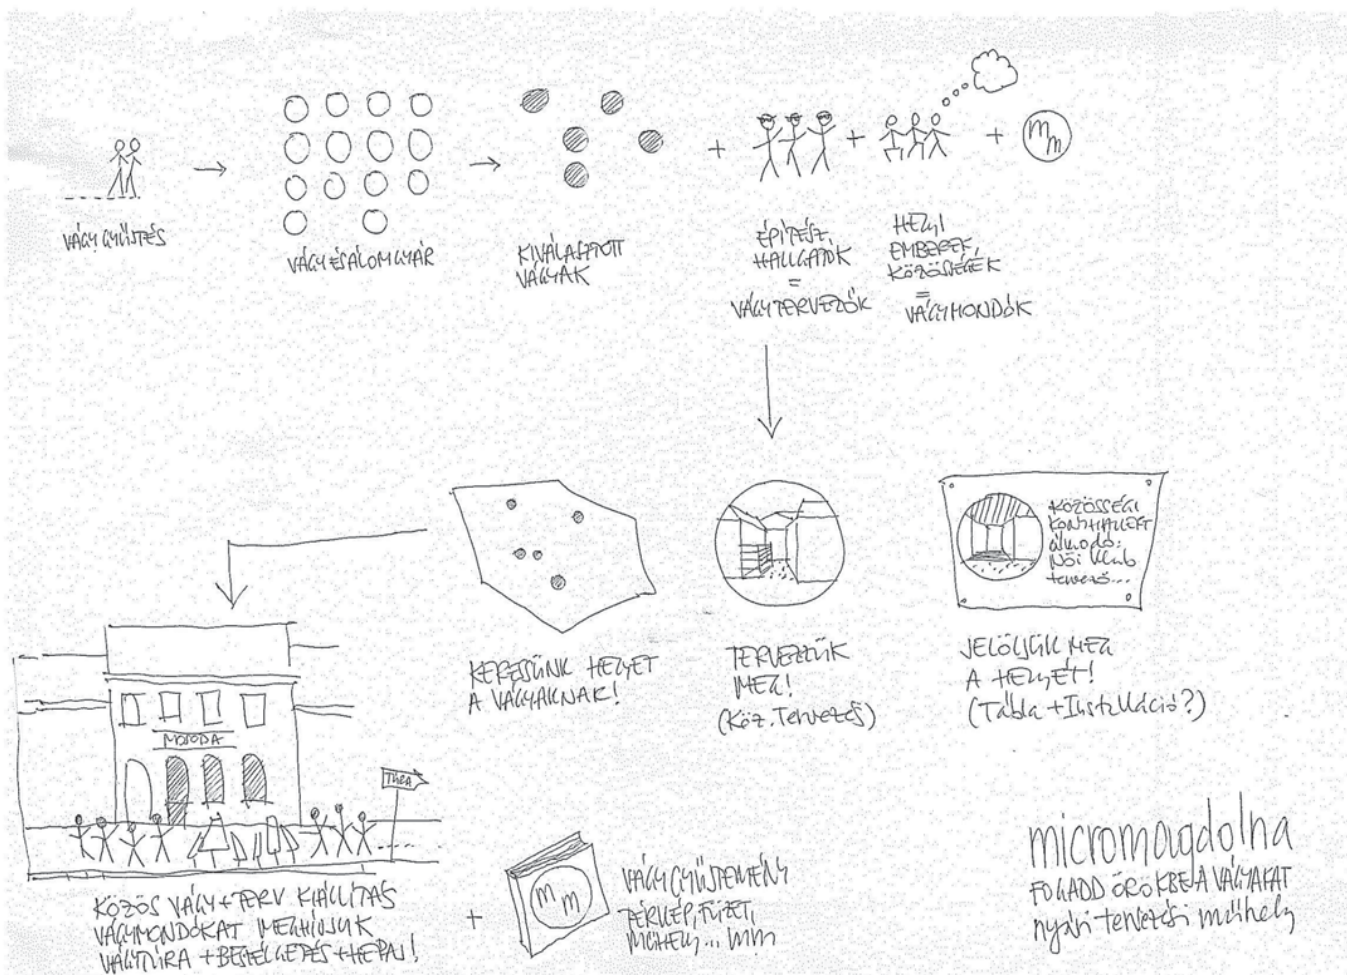 VÁGYGYŰJTÉS
VÁGY ÉS ÁLOMGYÁR
KIVÁLASZTOTT
VÁGYAK
ÉPÍTÉSZ
HALLGATÓK
=
VÁGYTERVEZŐK
HELYI
EMBEREK,
KÖZÖSSÉGEK
=
VÁGYMONDÓK
mm
KERESSÜNK HELYET
A VÁGYAKNAK!
TERVEZZÜK
MEG!
(Köz. Tervezés)
KÖZÖSSÉGI
álmodó:
Női klub
tervező...
JELÖLJÜK MEG
A HELYÉT!
(Tábla + Installáció?)
MOSODA
TÚRA
KÖZÖS VÁGY+TERV KIÁLLÍTÁS
VÁGYMONDÓKAT MEGHÍVJUK
VÁGYTÚRA + BESZÉLGETÉS + HEPAJ!
+
mm
VÁGYGYŰJTEMÉNY
TÉRKÉP, FÜZET,
MŰHELY... MM
micromagdolna
FOGADD ÖRÖKBE A VÁGYAKAT
nyári tervezési műhely